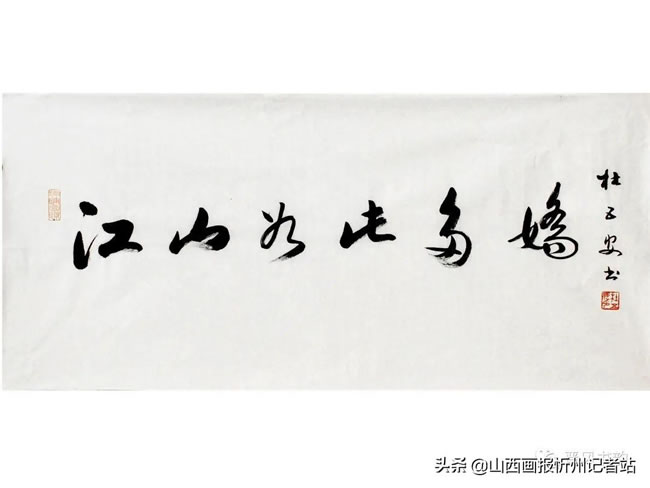 江山如此多嬌
杜子安书
头条 @山西画报忻州记者站